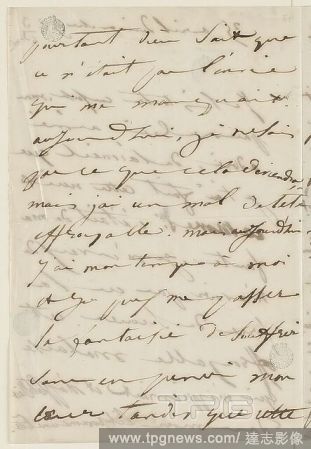 pourtant dieu sait que
ce n'était pas l'envie
qui me manquait
aujourdhui, je ne sais
pas ce que cela deviendra
mais j'ai un mal de tête
effroyable, mais aujourdhui
j'ai mon temps à moi
et je puis me passer
la fantaisie de souffrir
sans en punir mon
coeur tandis que cette
TPG
www.tpgnews.com/達志影像